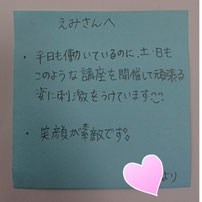 えみさんへ
・平日も働いているのに、土・日も
このような講座を開催して頑張る
姿に刺激をうけています
・笑顔が素敵です。
より